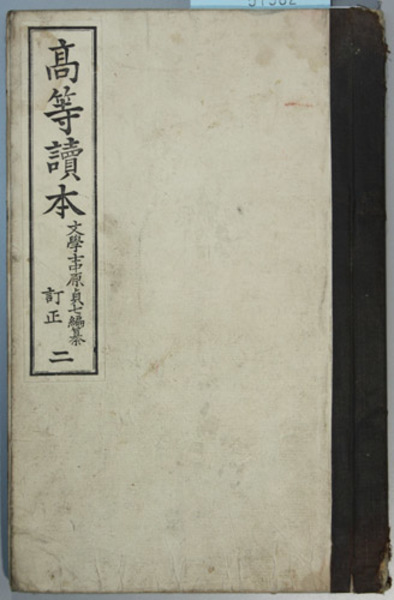 高等讀本
文學士中原貞七編纂
訂正
二